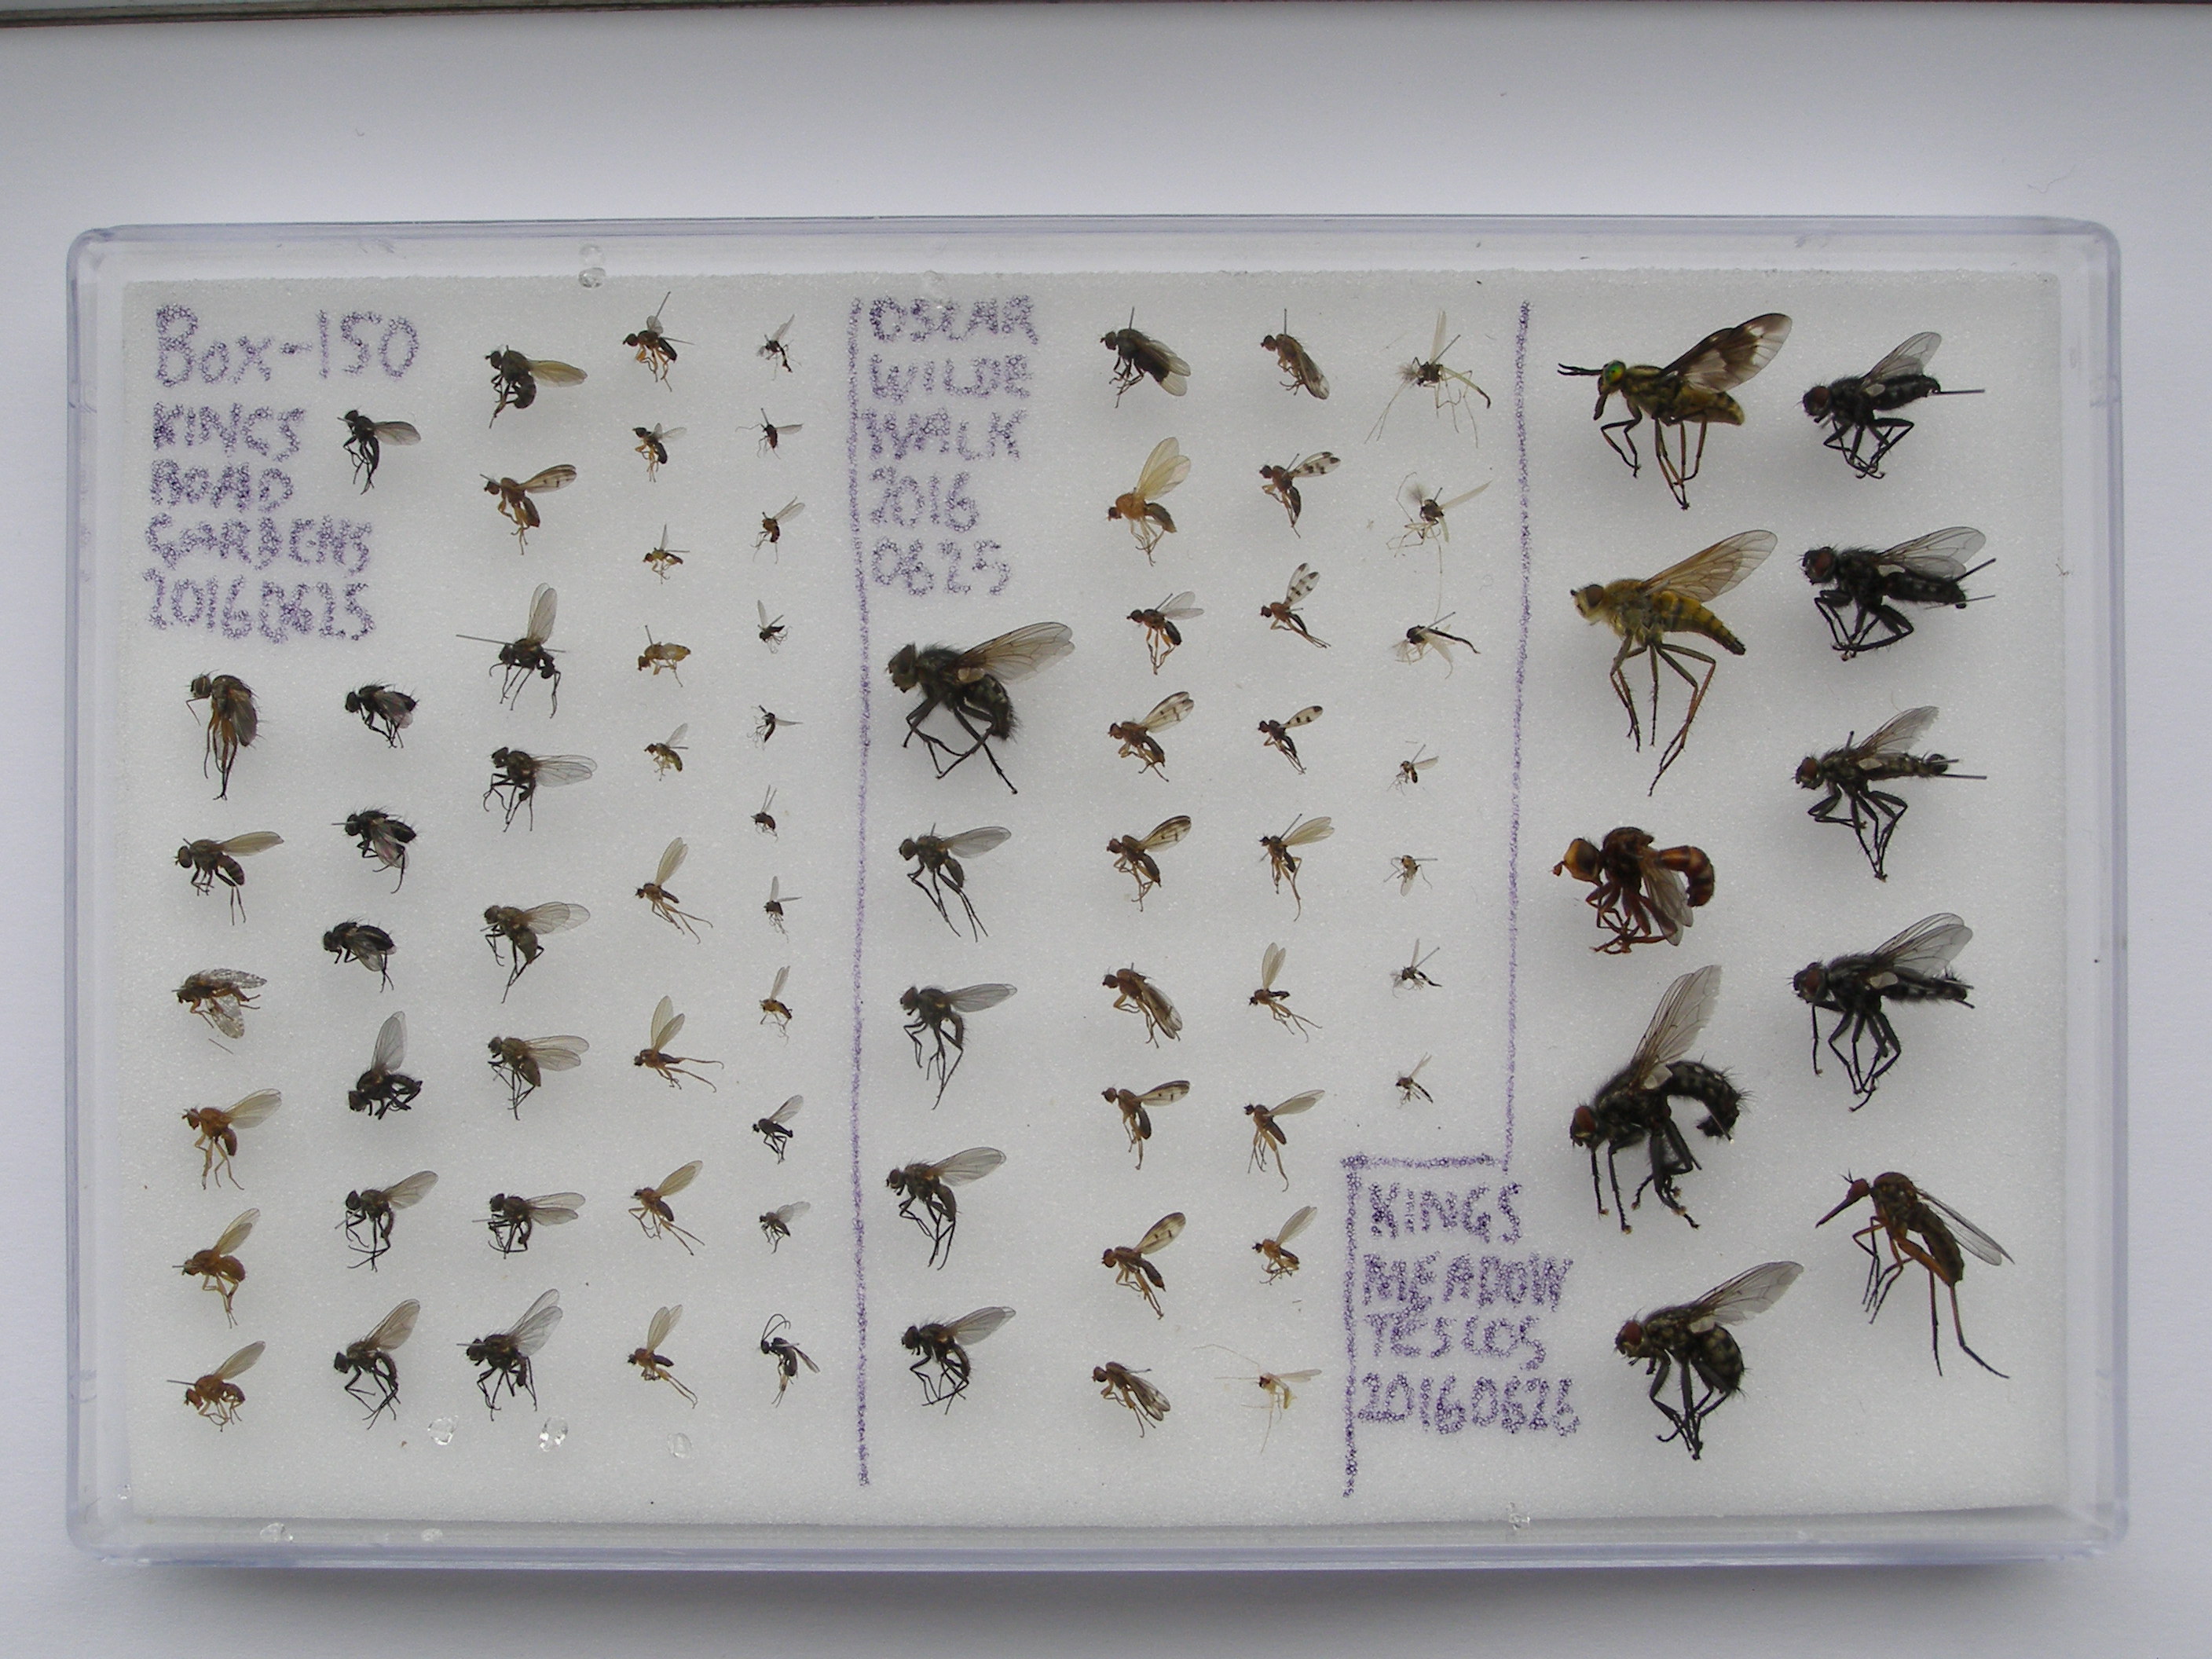 BOX-150
KINGS
ROAD
GARDENS
20160625
OSCAR
WILDE
WALK
2016
0625
KINGS
MEADOW
TESCOS
20160626